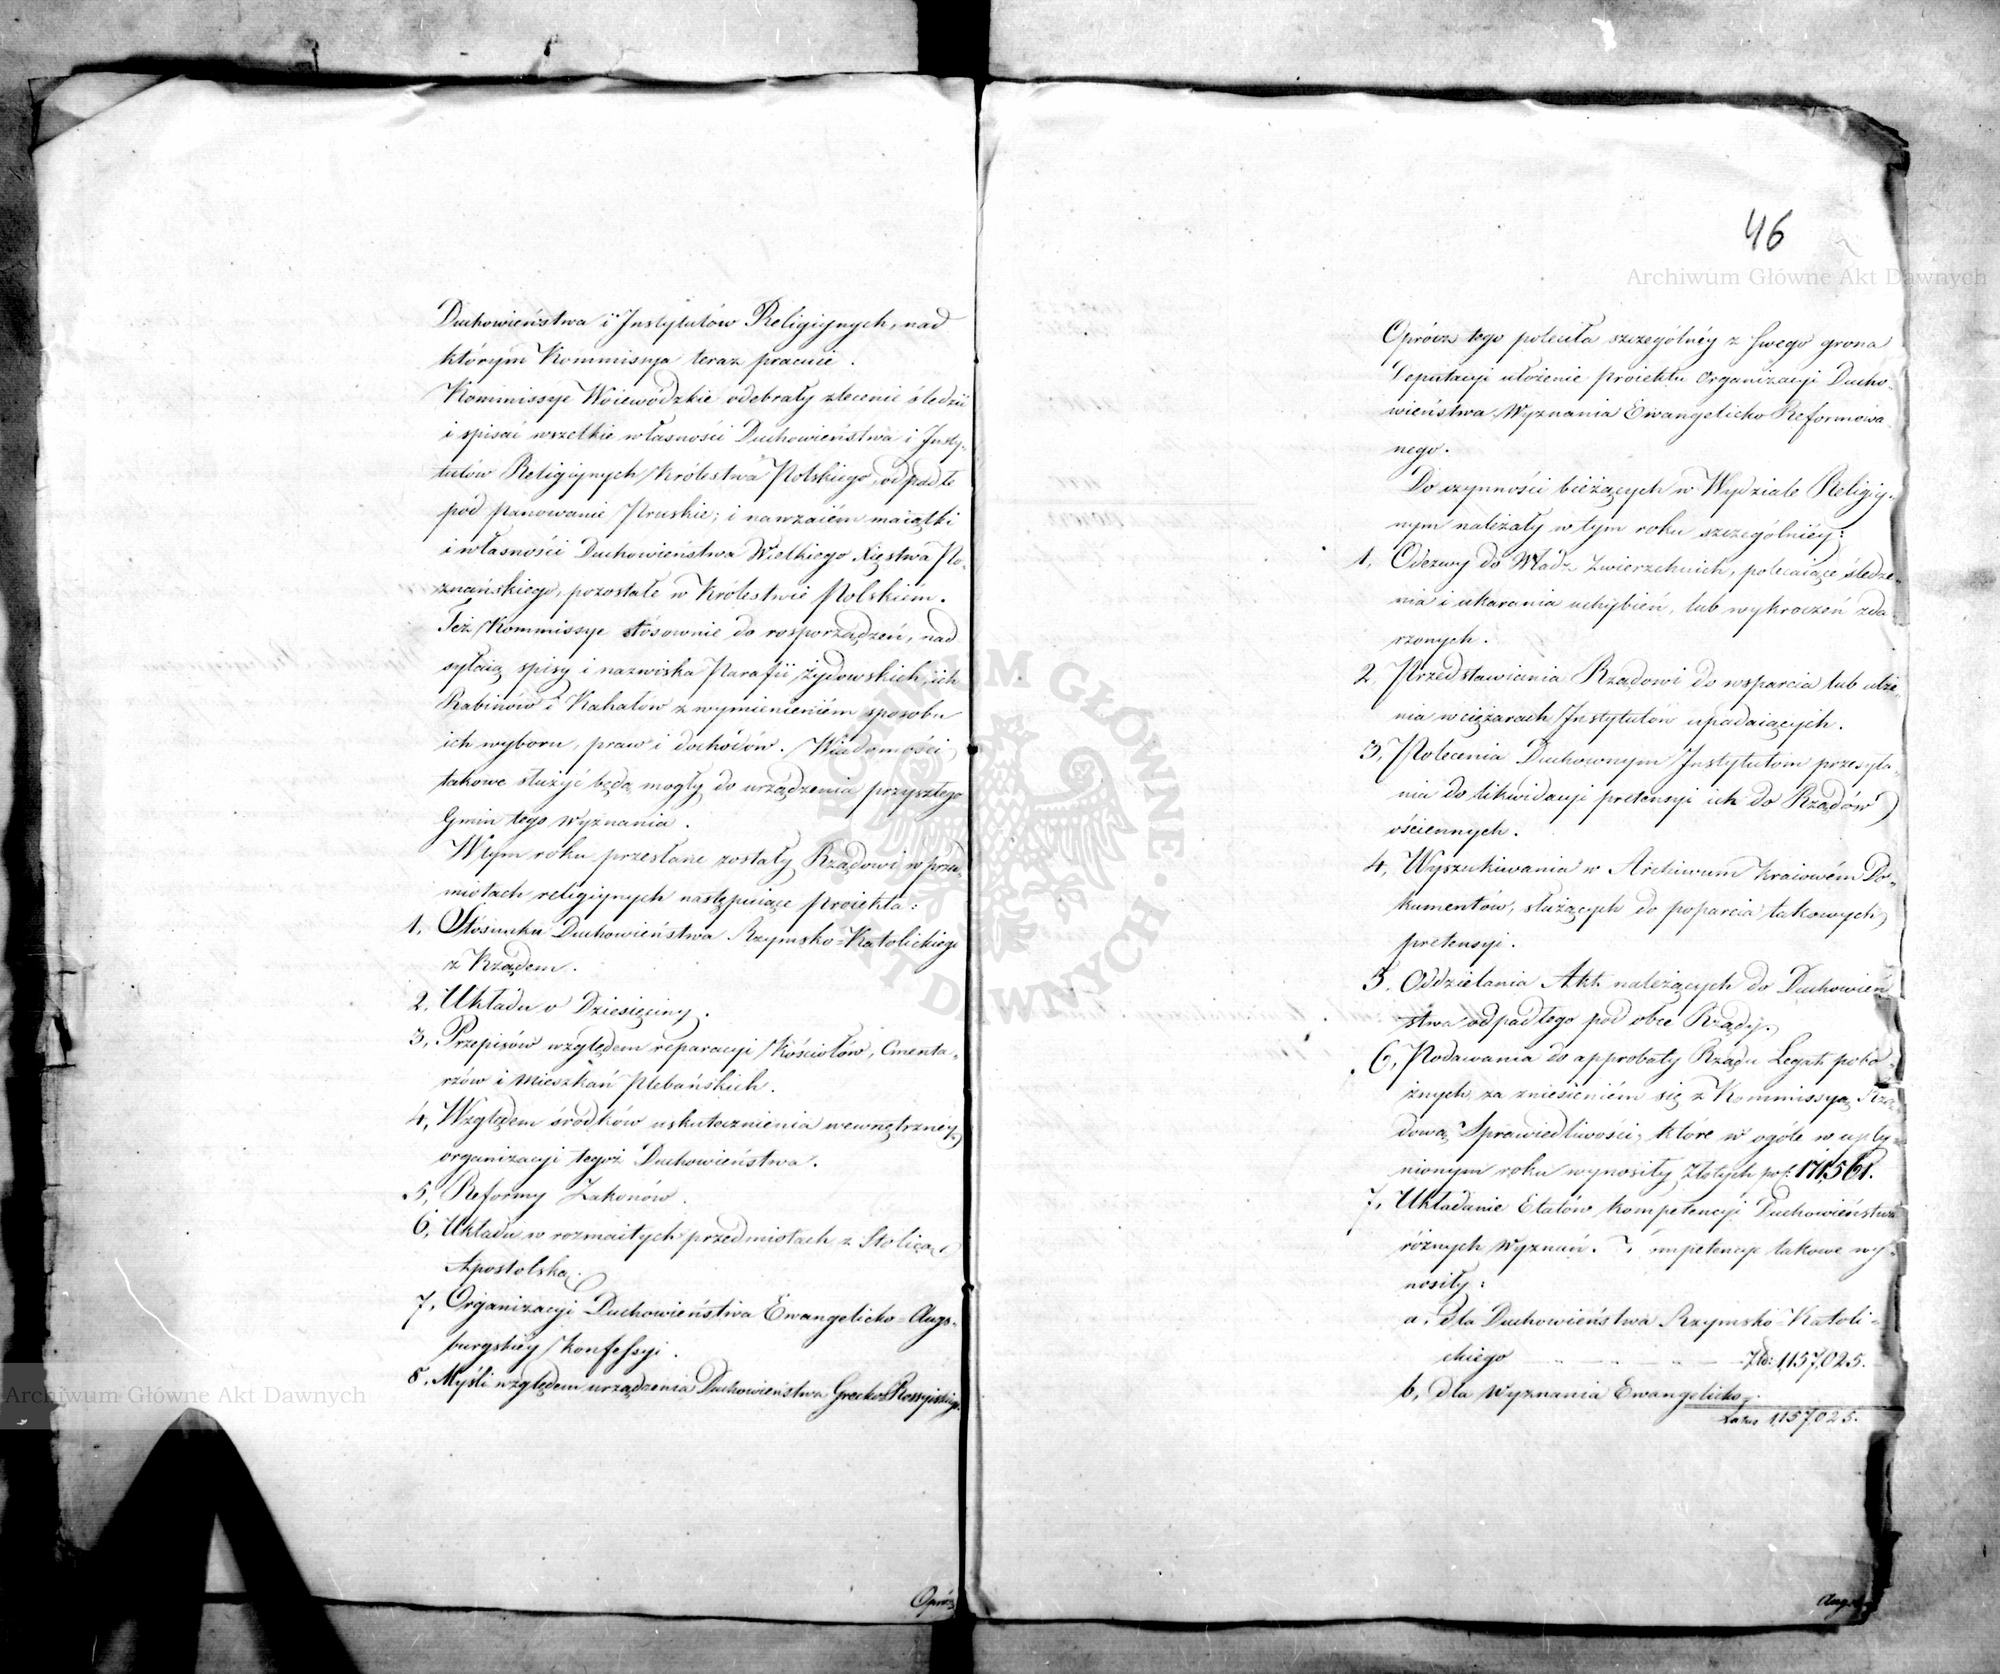 Duchowieństwa i Instytutów Religiynych, nad
którym Kommissya teraz pracuie.
Kommissye Woiewódzkie odebrały zlecenie śledzić
i spisać wszelkie własności Duchowieństwa i Insty-
tutów Religiynych Królestwa Polskiego, odpadłe
pod panowanie Pruskie; i nawzaiem maiątki
i własności Duchowieństwa Wielkiego Xięstwa Po-
znańskiego, pozostałe w Królestwie Polskiem.
Też Kommissye stosownie do rosporządzeń, nad
syłaią spisy i nazwiska Parafii żydowskich, ich
Rabinów i Kahałów z wymienieniem sposobu
ich wyboru, praw i dochodów. Wiadomości
takowe służyć będą mogły do urządzenia przyszłego
Gmin tego Wyznania.
W tym roku przesłane zostały Rządowi w przed-
miotach religiynych następuiące Proiekta:
1, Stosunku Duchowieństwa Rzymsko=Katolickiego
z Rządem.
2, Układu o Dziesięciny.
3, Przepisów względem reparacyi Kościołów, Cmenta-
rzów i Mieszkań Plebańskich.
4, Względem środków uskutecznienia wewnętrzney
organizacyi tegoż Duchowieństwa.
5, Reformy Zakonów.
6, Układu w rozmaitych przedmiotach z Stolicą
Apostolską.
7, Organizacyi Duchowieństwa Ewangelicko=Augs-
burgskiey Konfessyi.
8, Myśli względem urządzenia Duchowieństwa Grecko Rossyiskiego.
Oprócz
46
Oprócz tego poleciła szczególney z swego grona
Deputacyi ułożenie proiektu Organizacyi Ducho-
wieństwa Wyznania Ewangelicko Reformowa-
nego.
Do czynności bieżących w Wydziale Religiy-
nym należały w tym roku szczególniey:
1, Odezwy do Władz Zwierzchnich, polecaiące śledze-
nia i ukarania uchybień, lub wykroczeń zda-
rzonych.
2, Przedstawienia Rządowi do wsparcia lub ulże-
nia w ciężarach Instytutów upadaiących.
3, Polecenia Duchownym Instytutom przesyła-
nia do likwidacyi pretensyi ich do Rządów
ościennych.
4, Wyszukiwania w Archiwum Kraiowém Do-
kumentów, służących do poparcia takowych
pretensyi.
5, Oddzielania Akt należących do Duchowień-
stwa odpadłego pod obce Rządy.
6, Podawania do approbaty Rządu Legat pobo-
żnych, za zniesieniem się z Kommissyą Rzą-
dową Sprawiedliwości, które w ogóle w upły-
nionym roku wynosiły złotych pol: 171,561.
7, Układanie Etatów kompetencyi Duchowieństwa
różnych Wyznań. Kompetencye takowe wy-
nosiły:
a, dla Duchowieństwa Rzymsko=Katoli-
ckiego Złd: 1,157,025.
b, dla Wyznania Ewangelicko-
Latus 1,157,025.
Augs
Archiwum Główne Akt Dawnych
Archiwum Główne Akt Dawnych
ARCHIWUM GŁÓWNE AKT DAWNYCH